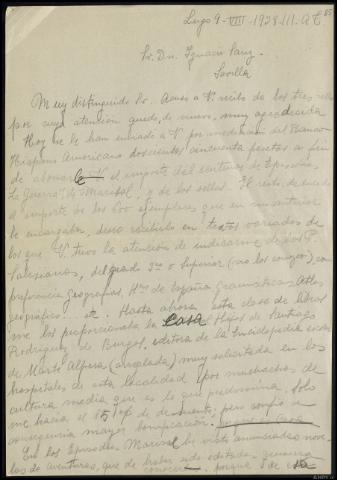 85
Lugo 9-VIII 1938 III. A. T.
Sr. Dn. Ignacio Sanz
Sevilla
Muy distinguido Sr. Acuso a V. recibo de los tres sellos
por cuya atención quedo, de nuevo, muy agradecida
Hoy se le han enviado a V. por mediación del Banco
Hispano Americano doscientas cincuenta pesetas a fin
de abonar el importe del centenar de Episodios
La Guerra de Marisol, y de los sellos. El resto,
el importe de los 600 ejemplares que en mi anterior
le encargaba, deseo recibirlo en textos variados de
los que V. tuvo la atención de indicarme de los P.
Salesianos, del grado 3º o Superior (no los conozco) con
preferencia geografías, Hª de España gramáticas Atlas
geográfico etc. Hasta ahora esta clase de libros
me los proporcionaba la Casa Hijos de Santiago
Rodríguez de Burgos, editora de la Enciclopedia escolar
de Marti Alpera (arreglada) muy solicitada en los
hospitales de esta localidad por muchachos de
cultura media que es la que predomina. Solo
me hacía el 15 % de descuento; pero confío en
conseguir mayor bonificación.
En los Episodios Marisol he visto anunciadas nove-
las de aventuras, que de haber sido editadas, quisiera
conocer porque